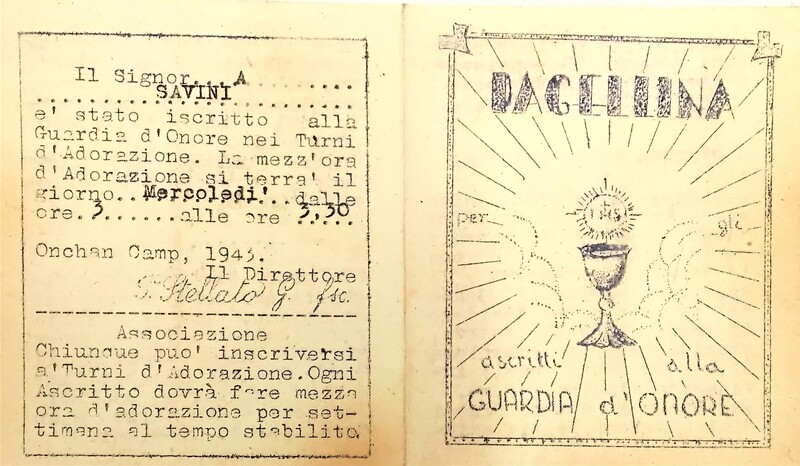 Il Signor...A.......
SAVINI
e' stato iscritto alla
Guardia d'Onore nei Turni
d'Adorazione. La mezz'ora
d'Adorazione si terra' il
giorno..Mercoledi'..dalle
ore.3......alle ore 3,30
Onchan Camp, 1943.
Il Direttore
T. Stellato G. fsc.
Associazione
Chiunque puo' inscriversi
a'Turni d'Adorazione.Ogni
Ascritto dovrà fare mezza
ora d'adorazione per set-
timana al tempo stabilito.
PAGELLINA
IHS
per gli
ascritti alla
GUARDIA d'ONORE